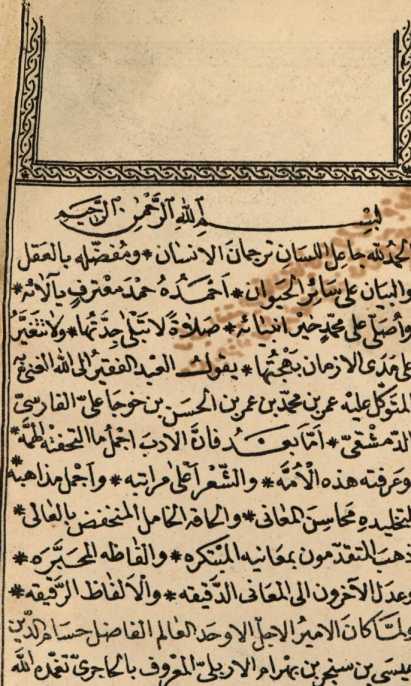 بسم الله الرحمن الرحيم
الحمد لله جاعل اللسان ترجمان الانسان * ومفضله بالعقل
والبيان على سائر الحيوان * احمده حمد معترف بآلائه *
واصلي على محمد خير انبيائه * صلاة لا تبلى جدتها * ولا تتغير
على مدى الازمان بهجتها * يقول العبد الفقير الى الله الغني به
المتوكل عليه عمر بن محمد بن عمر بن الحسن بن خوجا علي الفارسي
الدمشقي * اما بعد فان الادب اجمل ما التحفته
وعرفته هذه الأمة * والشعر اعلى مراتبه * واجمل مذاهبه
لتخليده محاسن المعاني * والحاقه الخامل المنخفض بالعالي *
ذهب المتقدمون بمعانيه المبتكره * والفاظه المحبره *
وعدل الآخرون الى المعاني الدقيقه * والالفاظ الرقيقه *
ولما كان الامير الاجل الاوحد العالم الفاضل حسام الدين
عيسى بن سنجر بن بهرام الاربلي المعروف بالحاجري تغمده الله